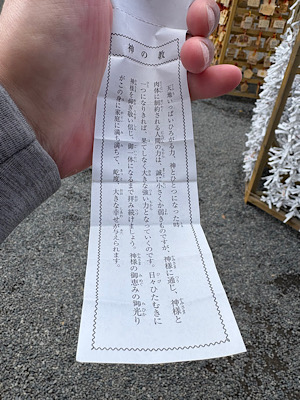 神の教
いっぱいひろがる力 神とひとつになった時
肉体に制約される人間の力は、誠に小さくか弱きものですが、神様に通じ、神様と
一つになりきれば、果てしなく大きな強い力となっていくのです。日々ひたむきに
神様を仰ぎ敬い信じ、御一体になるまで拝み続けましょう。神様の御恵みの御光り
がこの身に家庭に満ち満ちて、屹度、大きな幸せが与えられます。